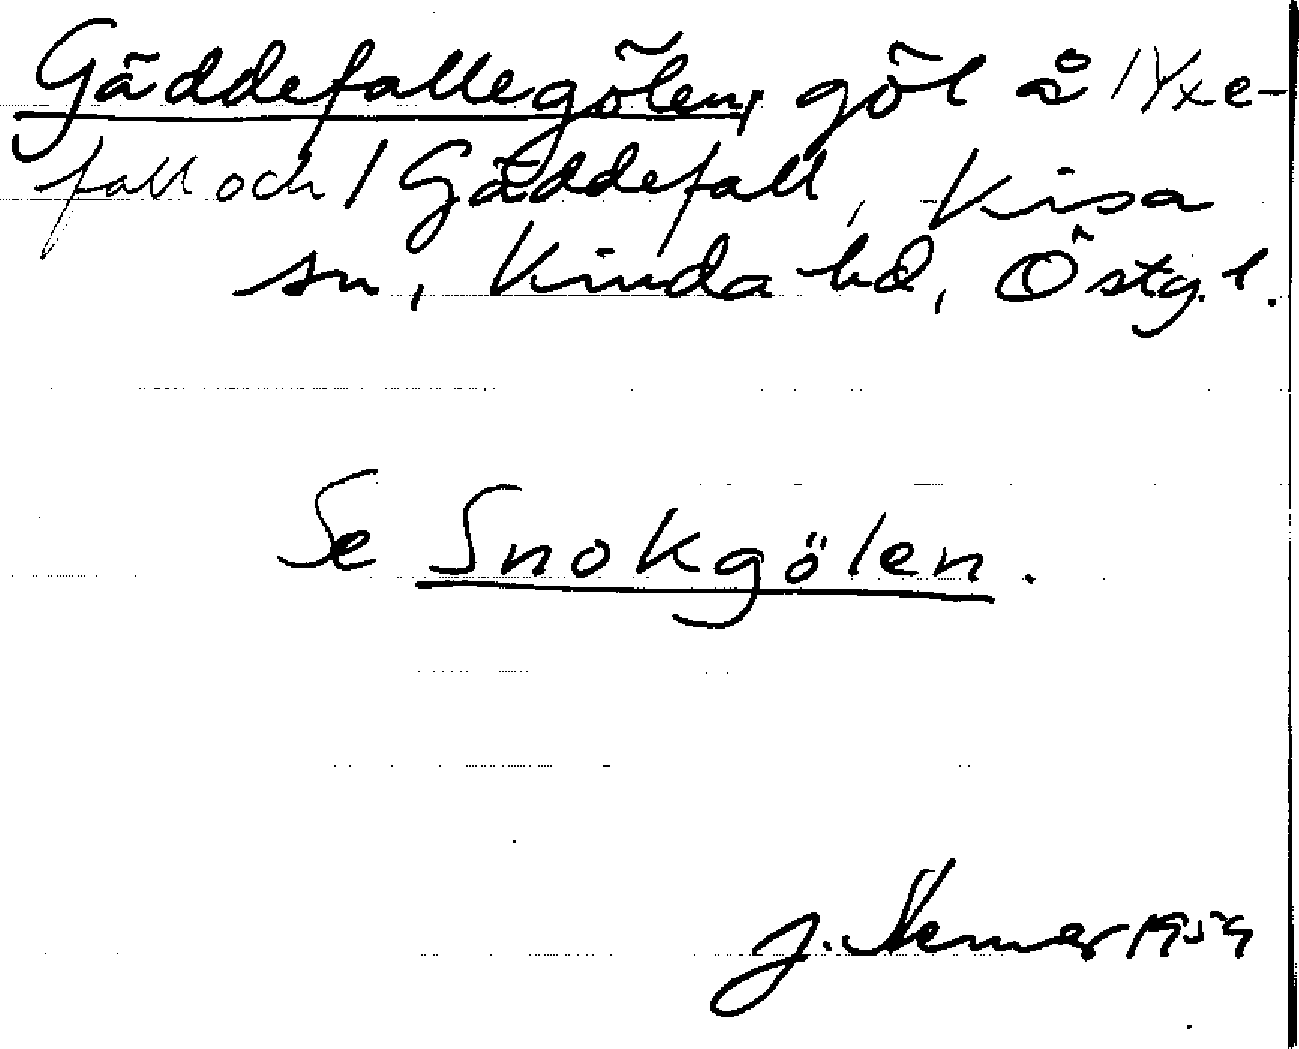 Gäddefallegölen, göl å /Yxe-
fall och / Gäddefall, Kisa
sn, Kinda hd, Östg. l.
Se Snokgölen.
J. 1959